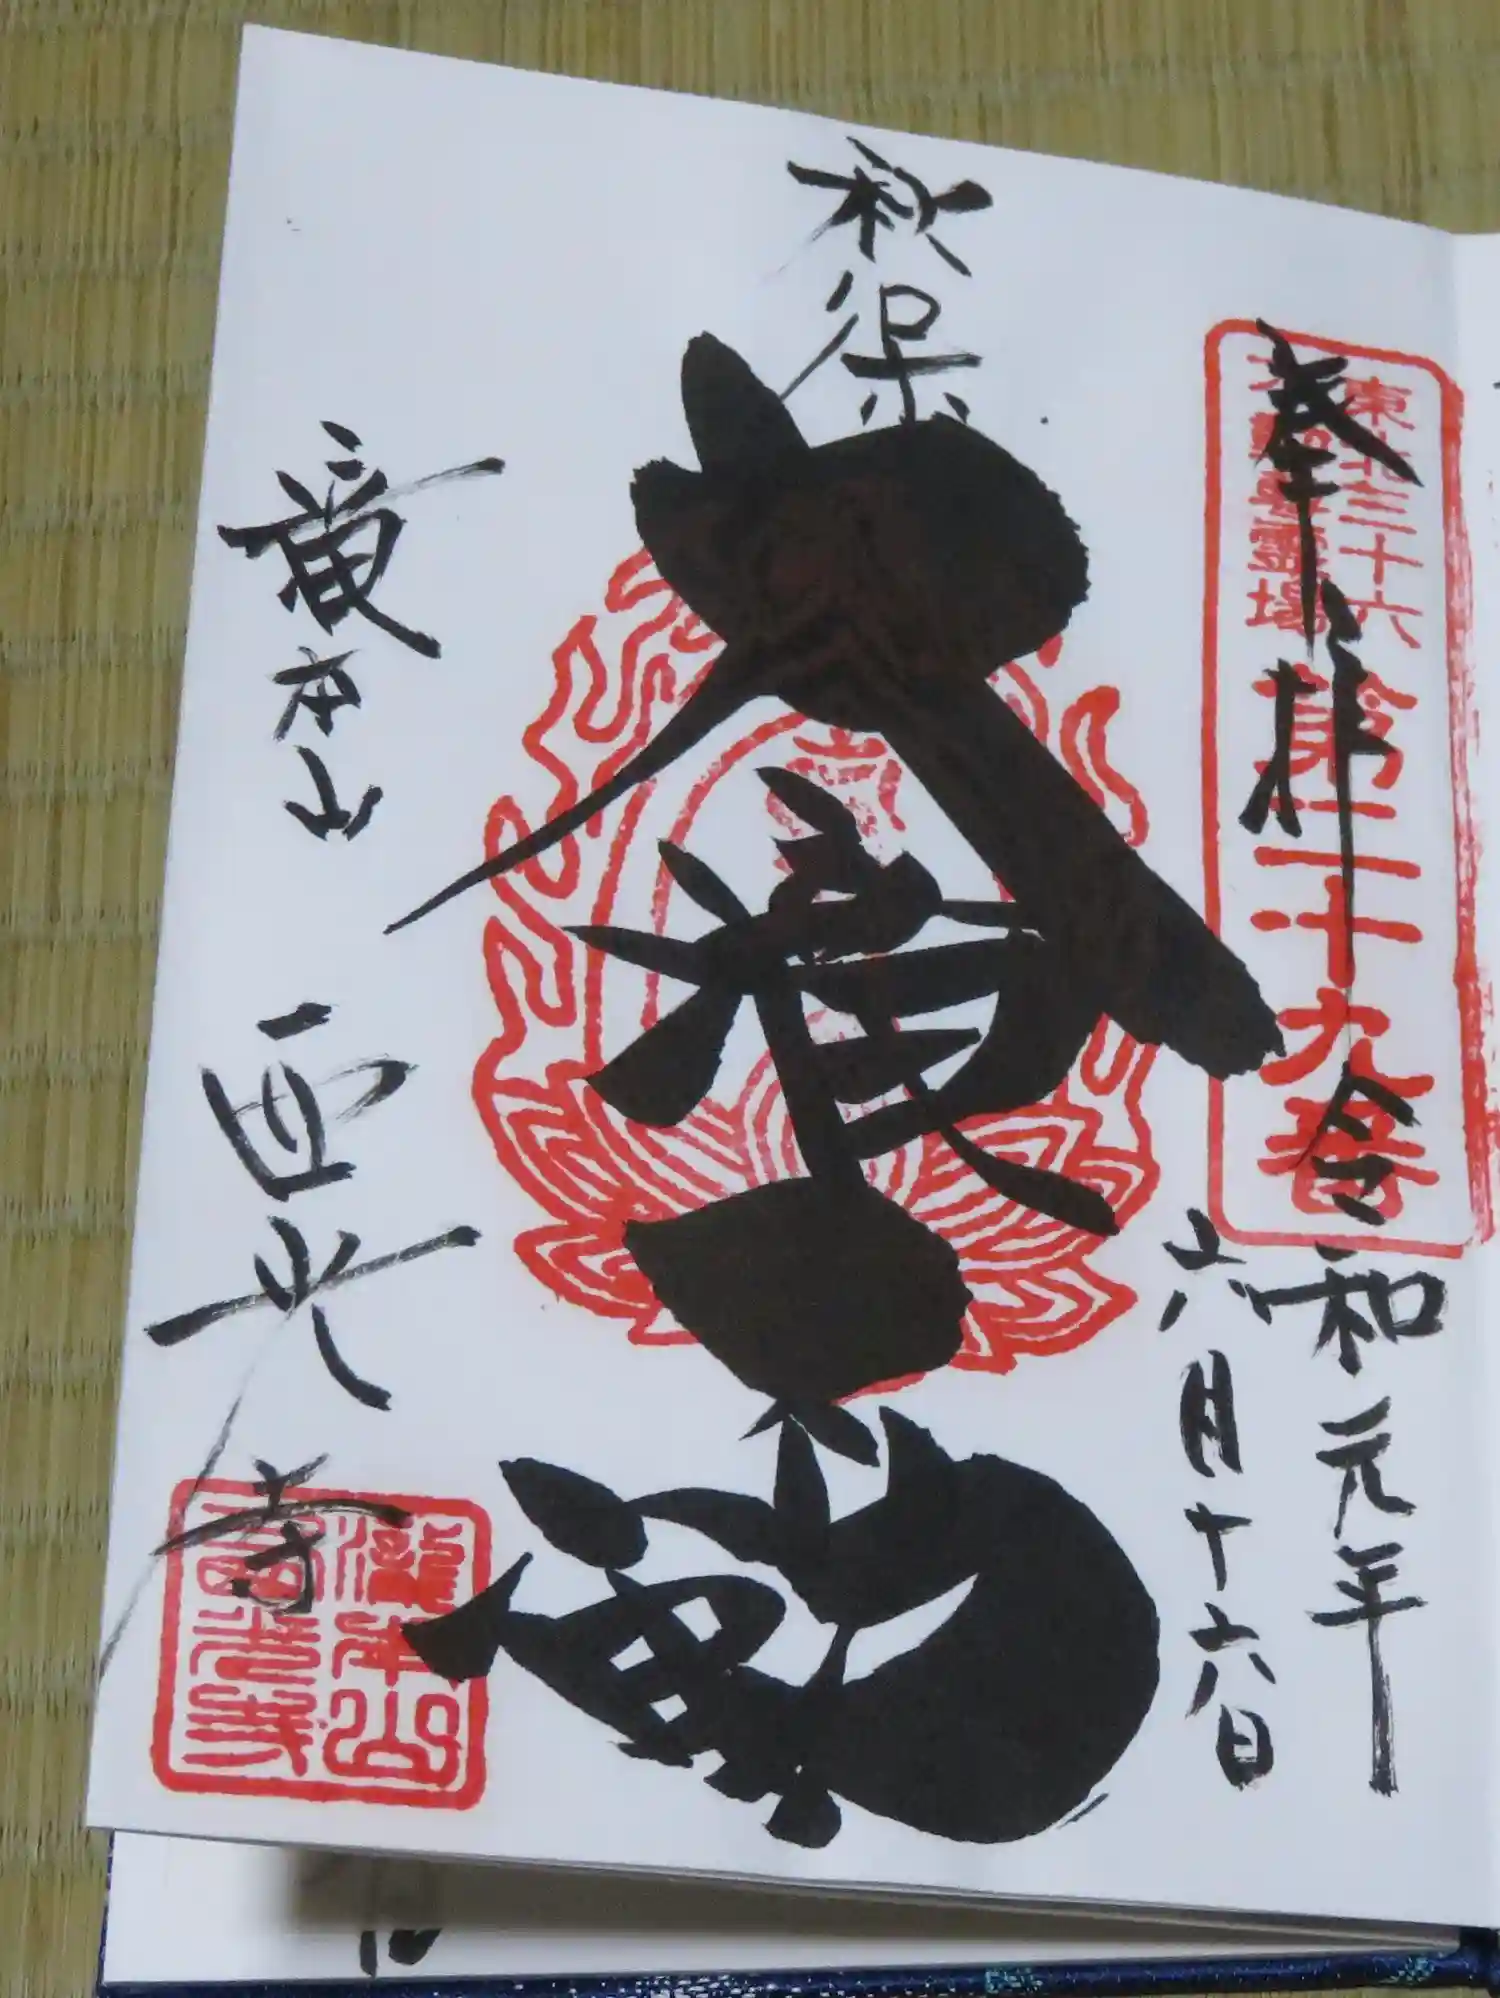 奉拝 令和元年
六月十六日
東北三十六
不動尊霊場
第二十九番
秋保
大滝不動
瀧本山 西光寺
瀧本山
西光寺